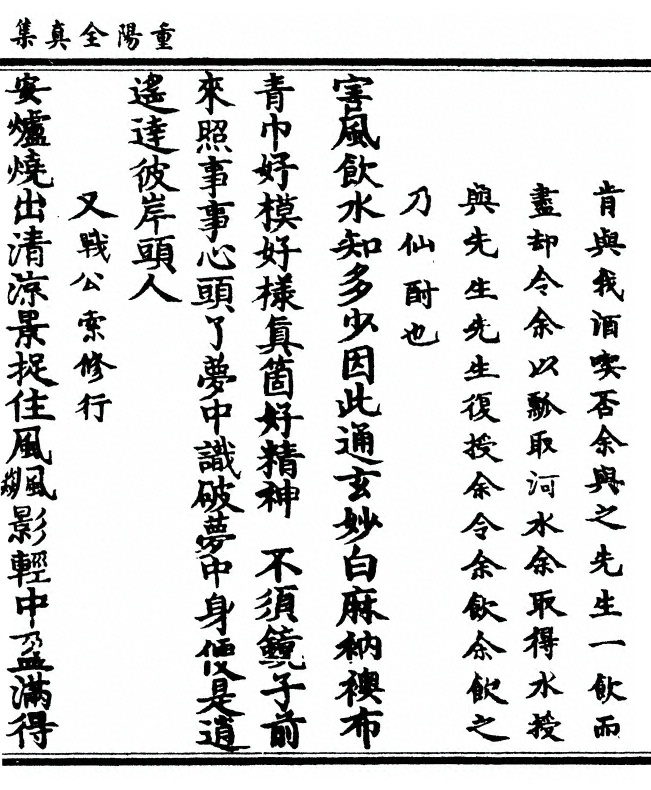 重陽全真集
肯與我酒喫否余與之先生一飲而
盡却令余以瓢取河水余取得水授
與先生先生復授余令余飲余飲之
乃仙酎也
害風飲水知多少因此通玄妙白麻衲襖布
青巾好模好樣眞箇好精神 不須鏡子前
來照事事心頭了夢中識破夢中身便是逍
遙達彼岸頭人
又 戰公索修行
安爐燒出清涼景捉住風飆影輕中盈滿得